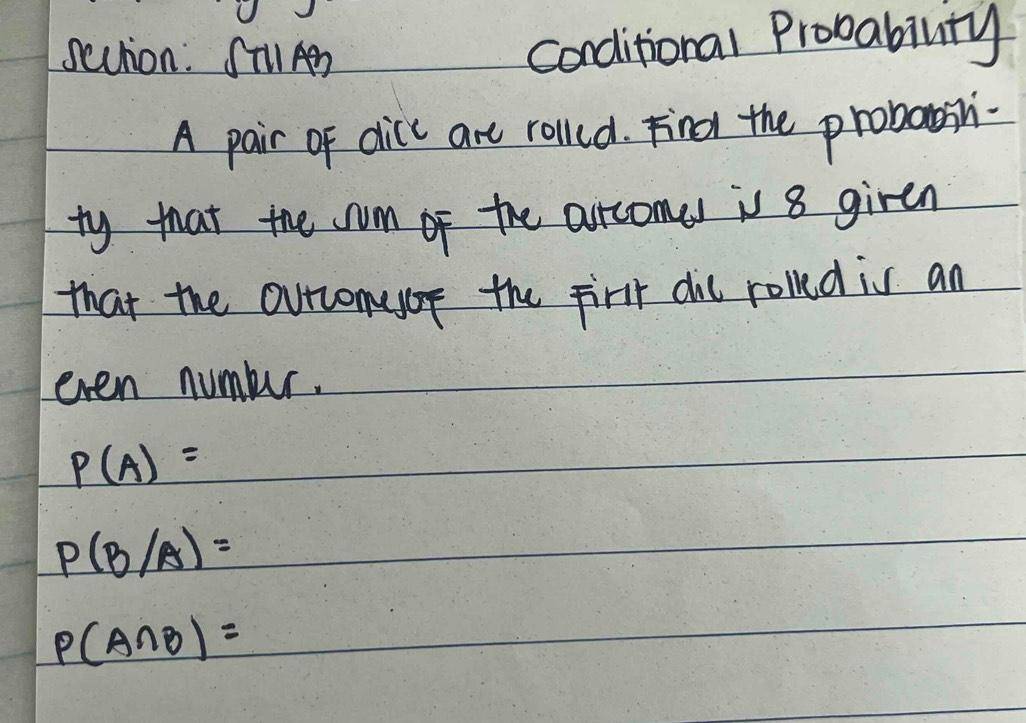 Section: STII A3 Conditional Probability
A pair of dice are rolled. Find the probabili-
ty that the sum of the outcomes is 8 given
that the outcomes of the first die rolled is an
even number.
P(A) =
P(B/A) =
P(A∩B) =